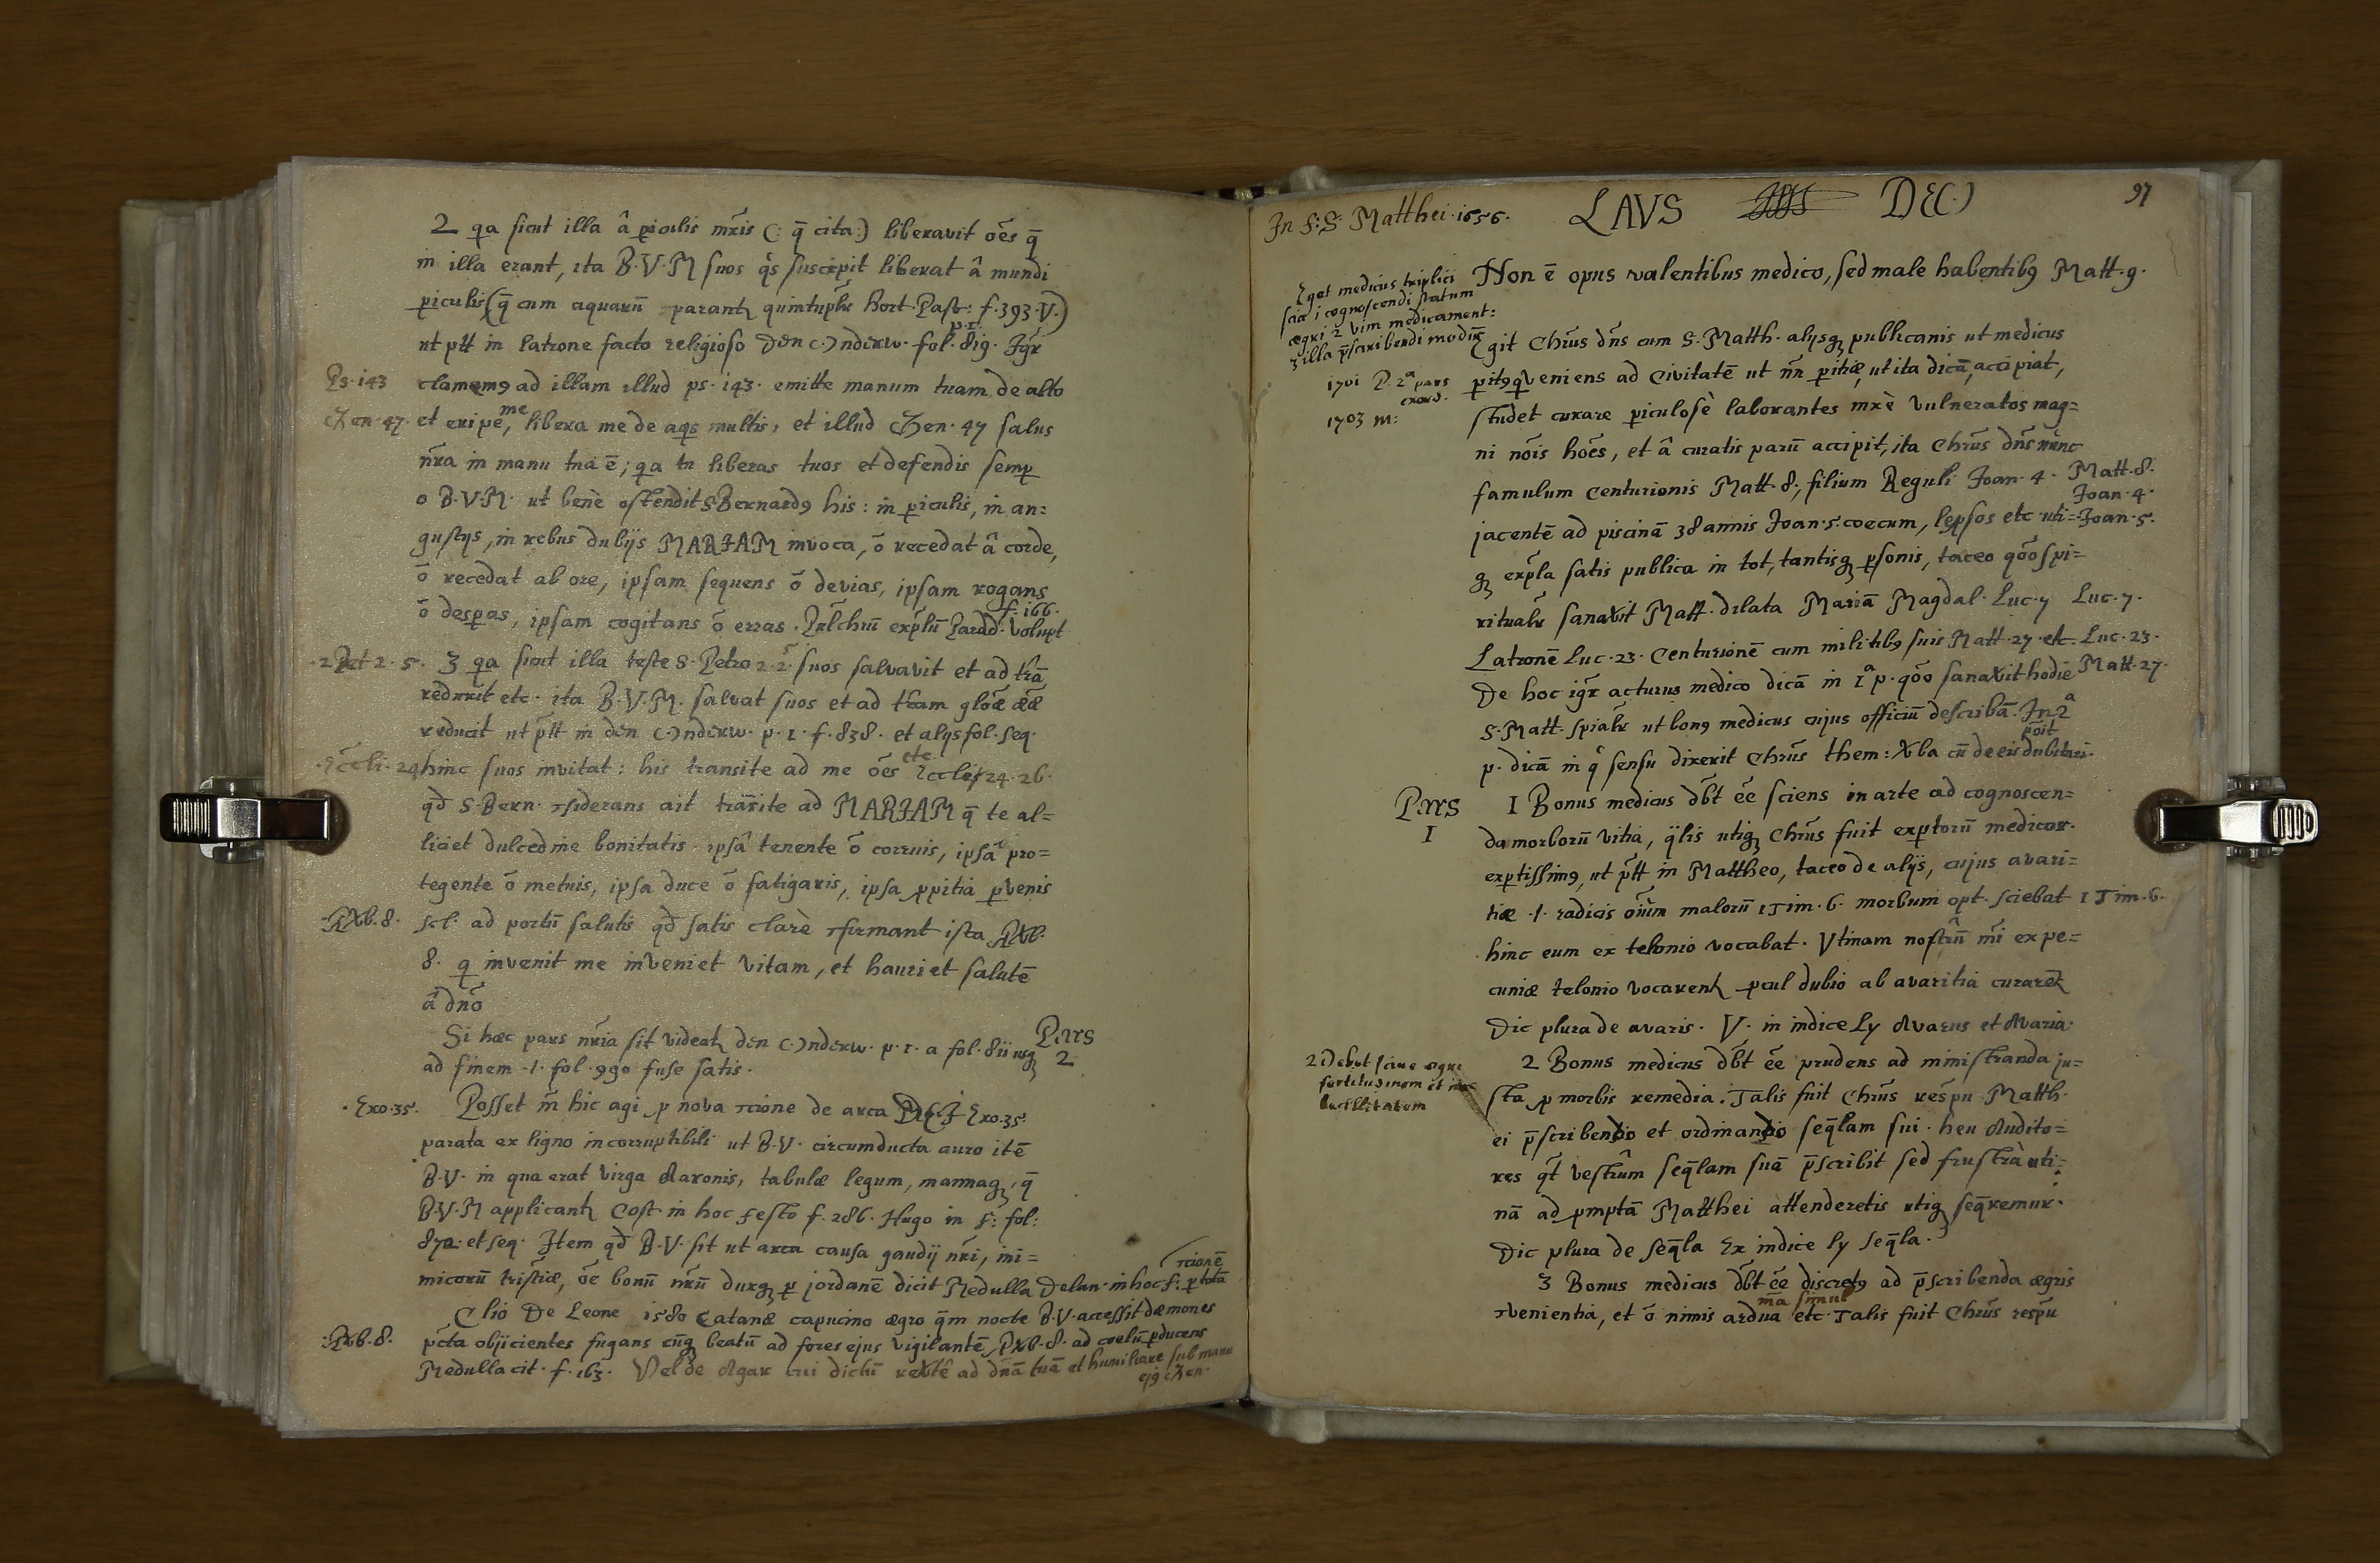 2 qa sicut illa â piculis mr̃is (: q̃ cita:) liberavit oẽs q̃
in illa erant, ita B.V.M suos q̊s suscepit liberat â mundi
piculis (q̃ cum aquarũ parant quintuplr̃ hort. Past: f. 393. V.)
p. 1.
ut ptt in latrone facto religioso Den nderw. fol. 819. Igr̃
Ps. 143 clamem9 ad illam illud ps. 143. emitte manum tuam de alto
Gen. 47. et eripe me, libera me de aqs multis, et illud Gen. 47 salus
nr̃a in manu tua ē; qa tu liberas tuos et defendis semp
o B.V.M. ut benè ostendit S Bernard9 his: in piculis, in an=
gustijs, in rebus dubijs MARIAM invoca, õ recedat â corde,
õ recedat ab ore, ipsam sequens õ devias, ipsam rogans
f. 166.
õ despas, ipsam cogitans õ erras. Pulchrũ explũ Parad. Volupt
2 Pet 2. 5. 3 qa sicut illa teste S. Petro 2. 2. suos salvavit et ad trã
reduxit etc. ita B.V.M. salvat suos et ad tram glõæ ææ
reducit ut ptt in den nderw. p. 1. f. 838. et alijs fol. seq.
Eccli. 24 hinc suos invitat: his transite ad me oẽs etc Eccles 24. 26.
qd̃ S. Bern. siderans ait trãsite ad MARIAM q̃ te al=
liciet dulcedine bonitatis ipsâ tenente õ corruis, ipsâ pro=
tegente õ metuis, ipsa duce õ fatigaris, ipsa ppitia pvenis
Prb. 8. scl. ad portũ salutis qd̃ satis clarè firmant ista Prb.
8. q invenit me inveniet vitam, et hauriet salutē
â dnõ
Si hæc pars nr̃ia sit videat den nderw. p. 1. a fol. 811 usq
Pars
2
ad finem .1. fol. 990 fuse satis.
Exo. 35. Posset m̃ hic agi p nova rcione de arca DEI Exo. 35.
parata ex ligno incorruptibili ut B.V. circumducta auro itē
B.V. in qua erat virga Aaronis, tabulæ legum, mannaq, q̃
B.V.M applicant Cost. in hoc festo f. 286. Hugo in f: fol:
872. et seq. Item qd̃ B.V. sit ut arca causa gaudij nr̃i, ini=
rcionē
micorũ tristiæ, õe bonũ nr̃ũ durq p jordanē dicit Medulla Delan. in hoc f: p totã
Clio De Leone 1580 Catanæ capucino ægro q̃m nocte B.V. accessit dæmones
Prb. 8. pcta objicientes fugans cũq beatũ ad fores ejus vigilantē, Prb. 8. ad coelũ pducens
Medulla cit. f. 163. Vel de Agar cui dictũ ad dnã tuã et humiliare sub manu
ej9 Gen.
In F: S: Matthei. 1656. LAVS DEO
97
Non ē opus valentibus medico, sed male habentib9 Matt. 9.
Eget medicus triplici
scia 1 cognoscendi statum
ægri 2 vim medicament:
3 illa p̃scribendi modũ
Egit Chr̃us dñs cum S. Matth. alijsq publicanis ut medicus
1701 P. 2ª pars
exord.
1703 m:
perit9 q veniens ad Civitatē ut nñ pitiæ, ut ita dicã, accipiat,
studet curare piculosè laborantes mr̃è vulneratos mag=
ni nõis hoẽs, et â curatis parũ accipit, ita Chr̃us dñs nunc
famulum centurionis Matt. 8., filium Reguli Joan. 4. Matt. 8.
Joan. 4.
jacentē ad piscinã 38 annis Joan. 5. coecum, lepsos etc uti= Joan. 5.
q expla satis publica in tot, tantisq psonis, taceo qõo spi=
ritualr̃ sanavit Matt. dilata Mariã Magdal. Luc. 7 Luc. 7.
Latronē Luc. 23. Centurionē cum militib9 suis Matt. 27. etc Luc. 23.
De hoc igr̃ acturus medico dicã in 1ª p. qõo sanavit hodie Matt. 27.
S. Matt. spialr̃ ut bon9 medicus cujus officiũ describã. In 2ª
p. dicã in q̊ sensu dixerit Chr̃us them: Vba cũ de eis dubitari
põit
Pars
1
1 Bonus medicus dbt ẽe sciens in arte ad cognoscen=
da morborũ vitia, qlis utiq Chr̃us fuit exptorũ medicor.
exptissim9, ut ptt in Mattheo, taceo de alijs, cujus avari=
tiæ .1. radicis oĩum malorũ 1 Tim. 6. morbum opt. sciebat 1 Tim. 6.
hinc eum ex telonio vocabat. Vtinam nostrũ m̃i ex pe=
cuniæ telonio vocarent pcul dubio ab avaritia curarēt
Dic plura de avaris. V. in indice ly Avarus et Avaria.
2 Debet scire ægri
fortitudinem et im=
becillitatem
2 Bonus medicus dbt ẽe prudens ad ministranda ju=
sta p morbis remedia. Talis fuit Chr̃us respu Matth.
ei p̃scribendo et ordinando seq̃lam sui. heu Audito=
res qt vestrûm seq̃lam suã p̃scribit sed frustrà uti=
nã ad pmptã Matthei attenderetis utiq seq̃remur.
Dic plura de seq̃la Ex indice ly seq̃la.
3 Bonus medicus dbt ẽe discret9 ad p̃scribenda ægris
m̃a simul
venientia, et õ nimis ardua etc. Talis fuit Chr̃us respu